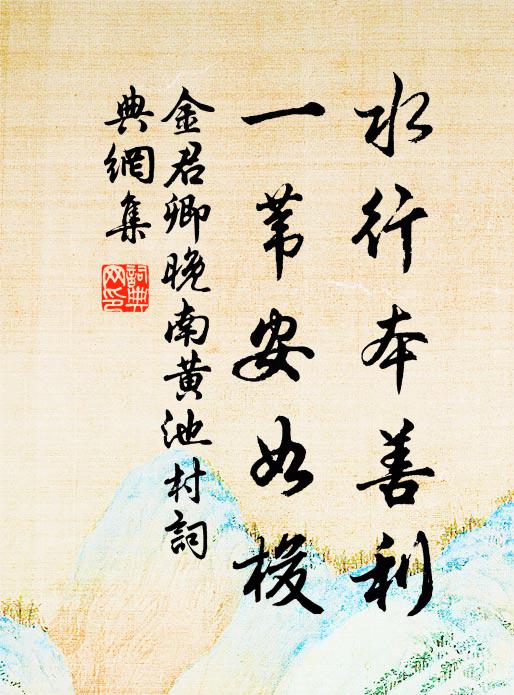 水行本善利
一苇安如梭
金君卿晚南黄池村詞
典網集
詞典网印